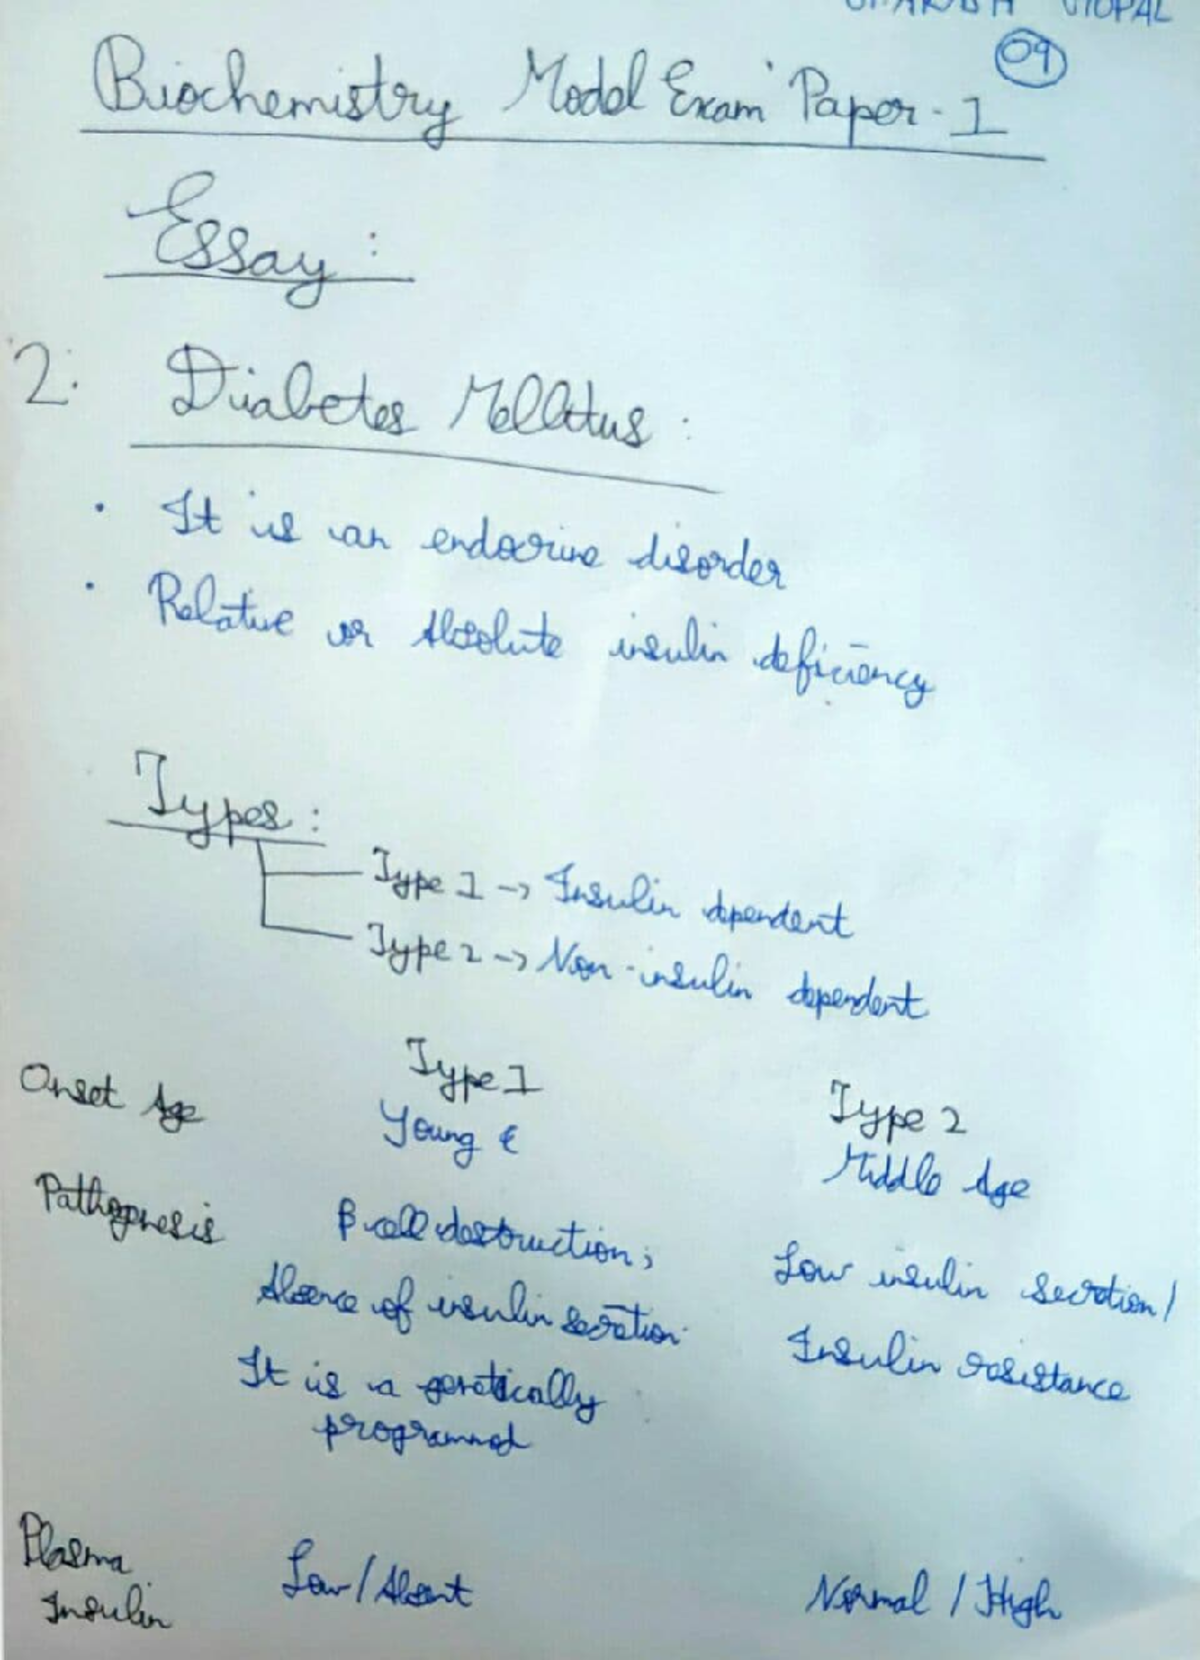 09
Biochemistry Model Exam Paper - 1
Essay :
2. Diabetes Mellitus :
· It is an endocrine disorder
· Relative or Absolute insulin deficiency
Types :
Type 1 -> Insulin dependent
Type 2 -> Non-insulin dependent
Type 1 Type 2
Onset Age Young & Middle Age
Pathogenesis β cell destruction; Low insulin secretion /
Absence of insulin secretion. Insulin resistance
It is a genetically
programmed
Plasma Low / Absent Normal / High
Insulin